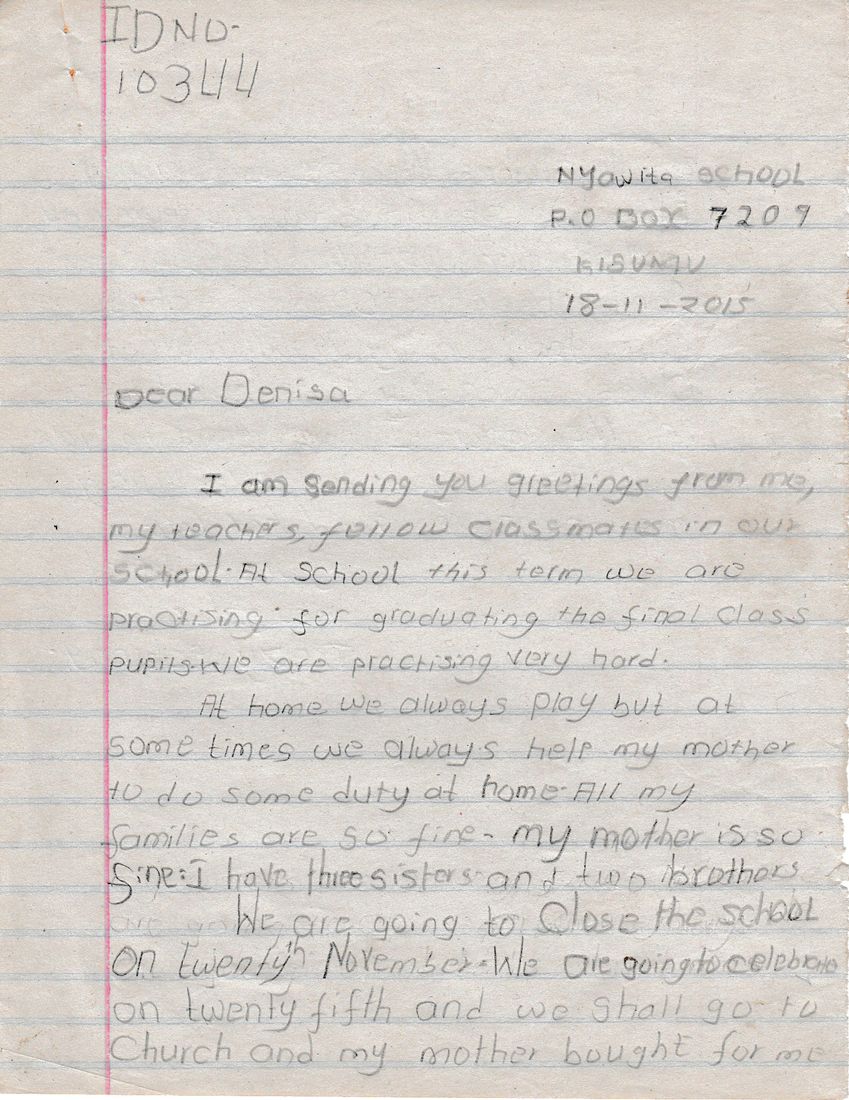 IDNO.
10344
Nyawita SCHOOL
P.O BOX 7209
KISUMU
18-11-2015
Dear Denisa
I am sending you greetings from me,
my teachers, fellow classmates in our
school. At School this term we are
practising for graduating the final class
pupils. We are practising very hard.
At home we always play but at
some times we always help my mother
to do some duty at home. All my
families are so fine. my mother is so
fine. I have three sisters and two brothers
We are going to Close the school
On twentyth November. We are going to celebrate
on twenty fifth and we shall go to
Church and my mother bought for me